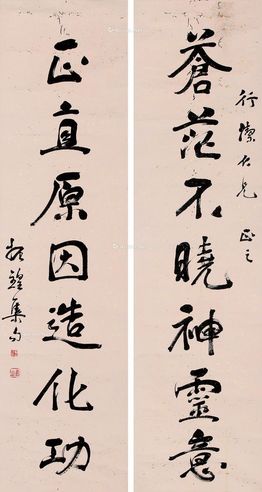 行潔大兄 正之
蒼茫不曉神靈意
正直原因造化功
集句